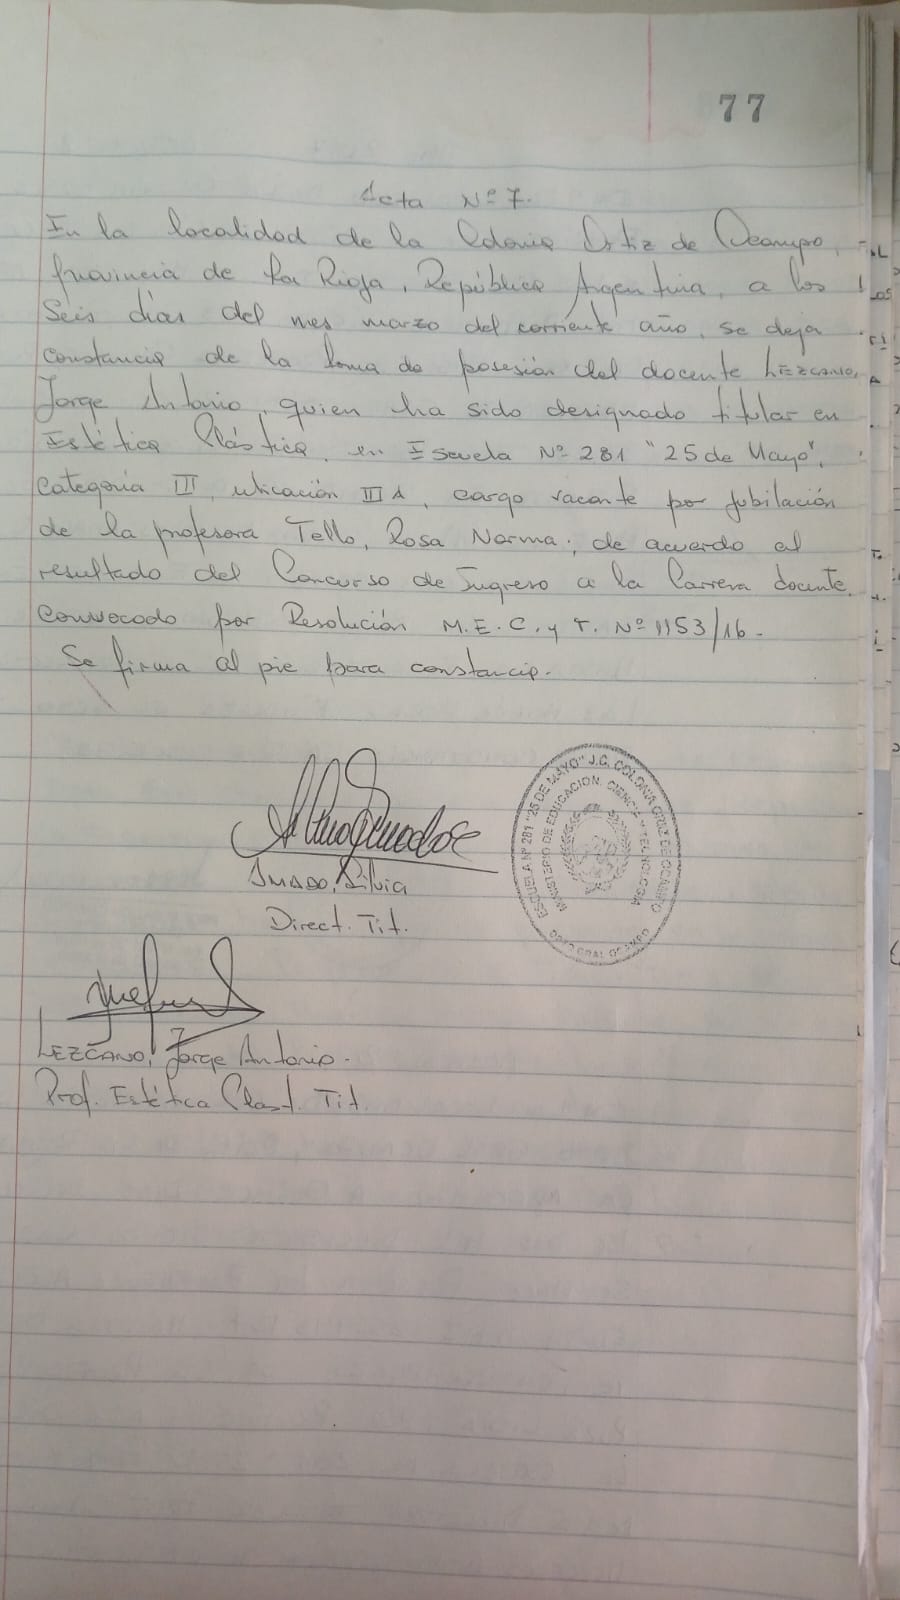 77
Acta Nº 7.
En la localidad de la Colonia Ortiz de Ocampo,
provincia de La Rioja, República Argentina, a los
Seis días del mes marzo del corriente año, se deja
constancia de la toma de posesión del docente LEZCANO,
Jorge Antonio, quien ha sido designado titular en
Estética Plástica, en Escuela Nº 281 "25 de Mayo",
Categoría III, ubicación III A, cargo vacante por jubilación
de la profesora Tello, Rosa Norma; de acuerdo al
resultado del Concurso de Ingreso a la Carrera docente,
Convocado por Resolución M.E.C. y T. Nº 1153/16-
Se firma al pie para constancia.
Silvia
Direct. Tit.
ESCUELA Nº 281 "25 DE MAYO" J.C. COLONIA ORTIZ DE OCAMPO
MINISTERIO DE EDUCACION, CIENCIA Y TECNOLOGIA
DPTO GRAL OCAMPO
LEZCANO, Jorge Antonio.
Prof. Estética Plast. Tit.